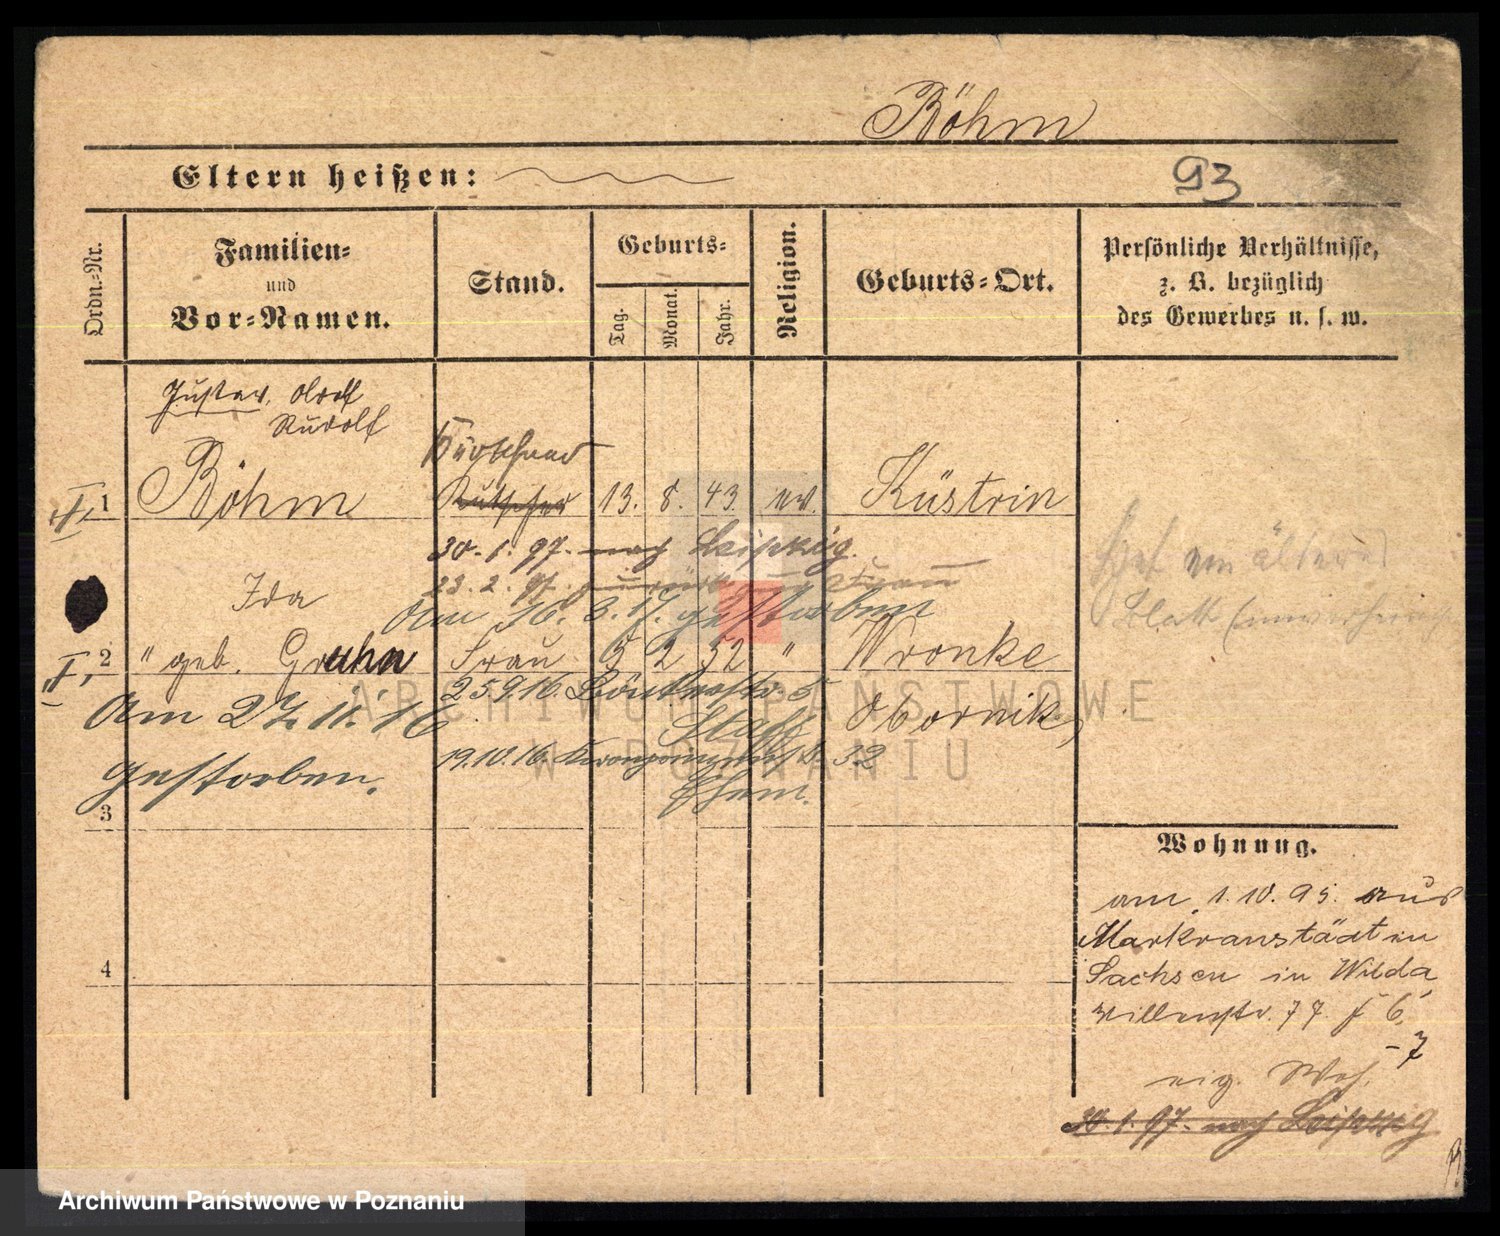 Böhm
Eltern heißen:
93
Ordn.-Nr.
Familien-
und
Vor-Namen.
Stand.
Geburts-
Tag.
Monat.
Jahr.
Religion.
Geburts-Ort.
Persönliche Verhältnisse,
z. B. bezüglich
des Gewerbes u. s. w.
Gustav, Adolf
Rudolf
II, 1
Böhm
Kutscher
13. 8. 43. ev. Küstrin
30. 1. 97. nach Leipzig.
23. 2. 97. zurück
Am 16. 3. 17. gestorben
Hat ein älteres
Blatt
Ida
II, 2
" geb. Gruhn
Frau 5 2 52 " Wronke
25.9.16. 5
Am 27. 11. 16
Obornik
gestorben.
19.10.16. Kronprinzenstr. 32
Ehem.
3
4
Wohnung.
am 1. 10. 95. aus
Markranstädt in
Sachsen in Wilda,
Villenstr. 77. 6.
- 7
eig. Woh.
30. 1. 97. nach Leipzig
ARCHIWUM PAŃSTWOWE
W POZNANIU
Archiwum Państwowe w Poznaniu